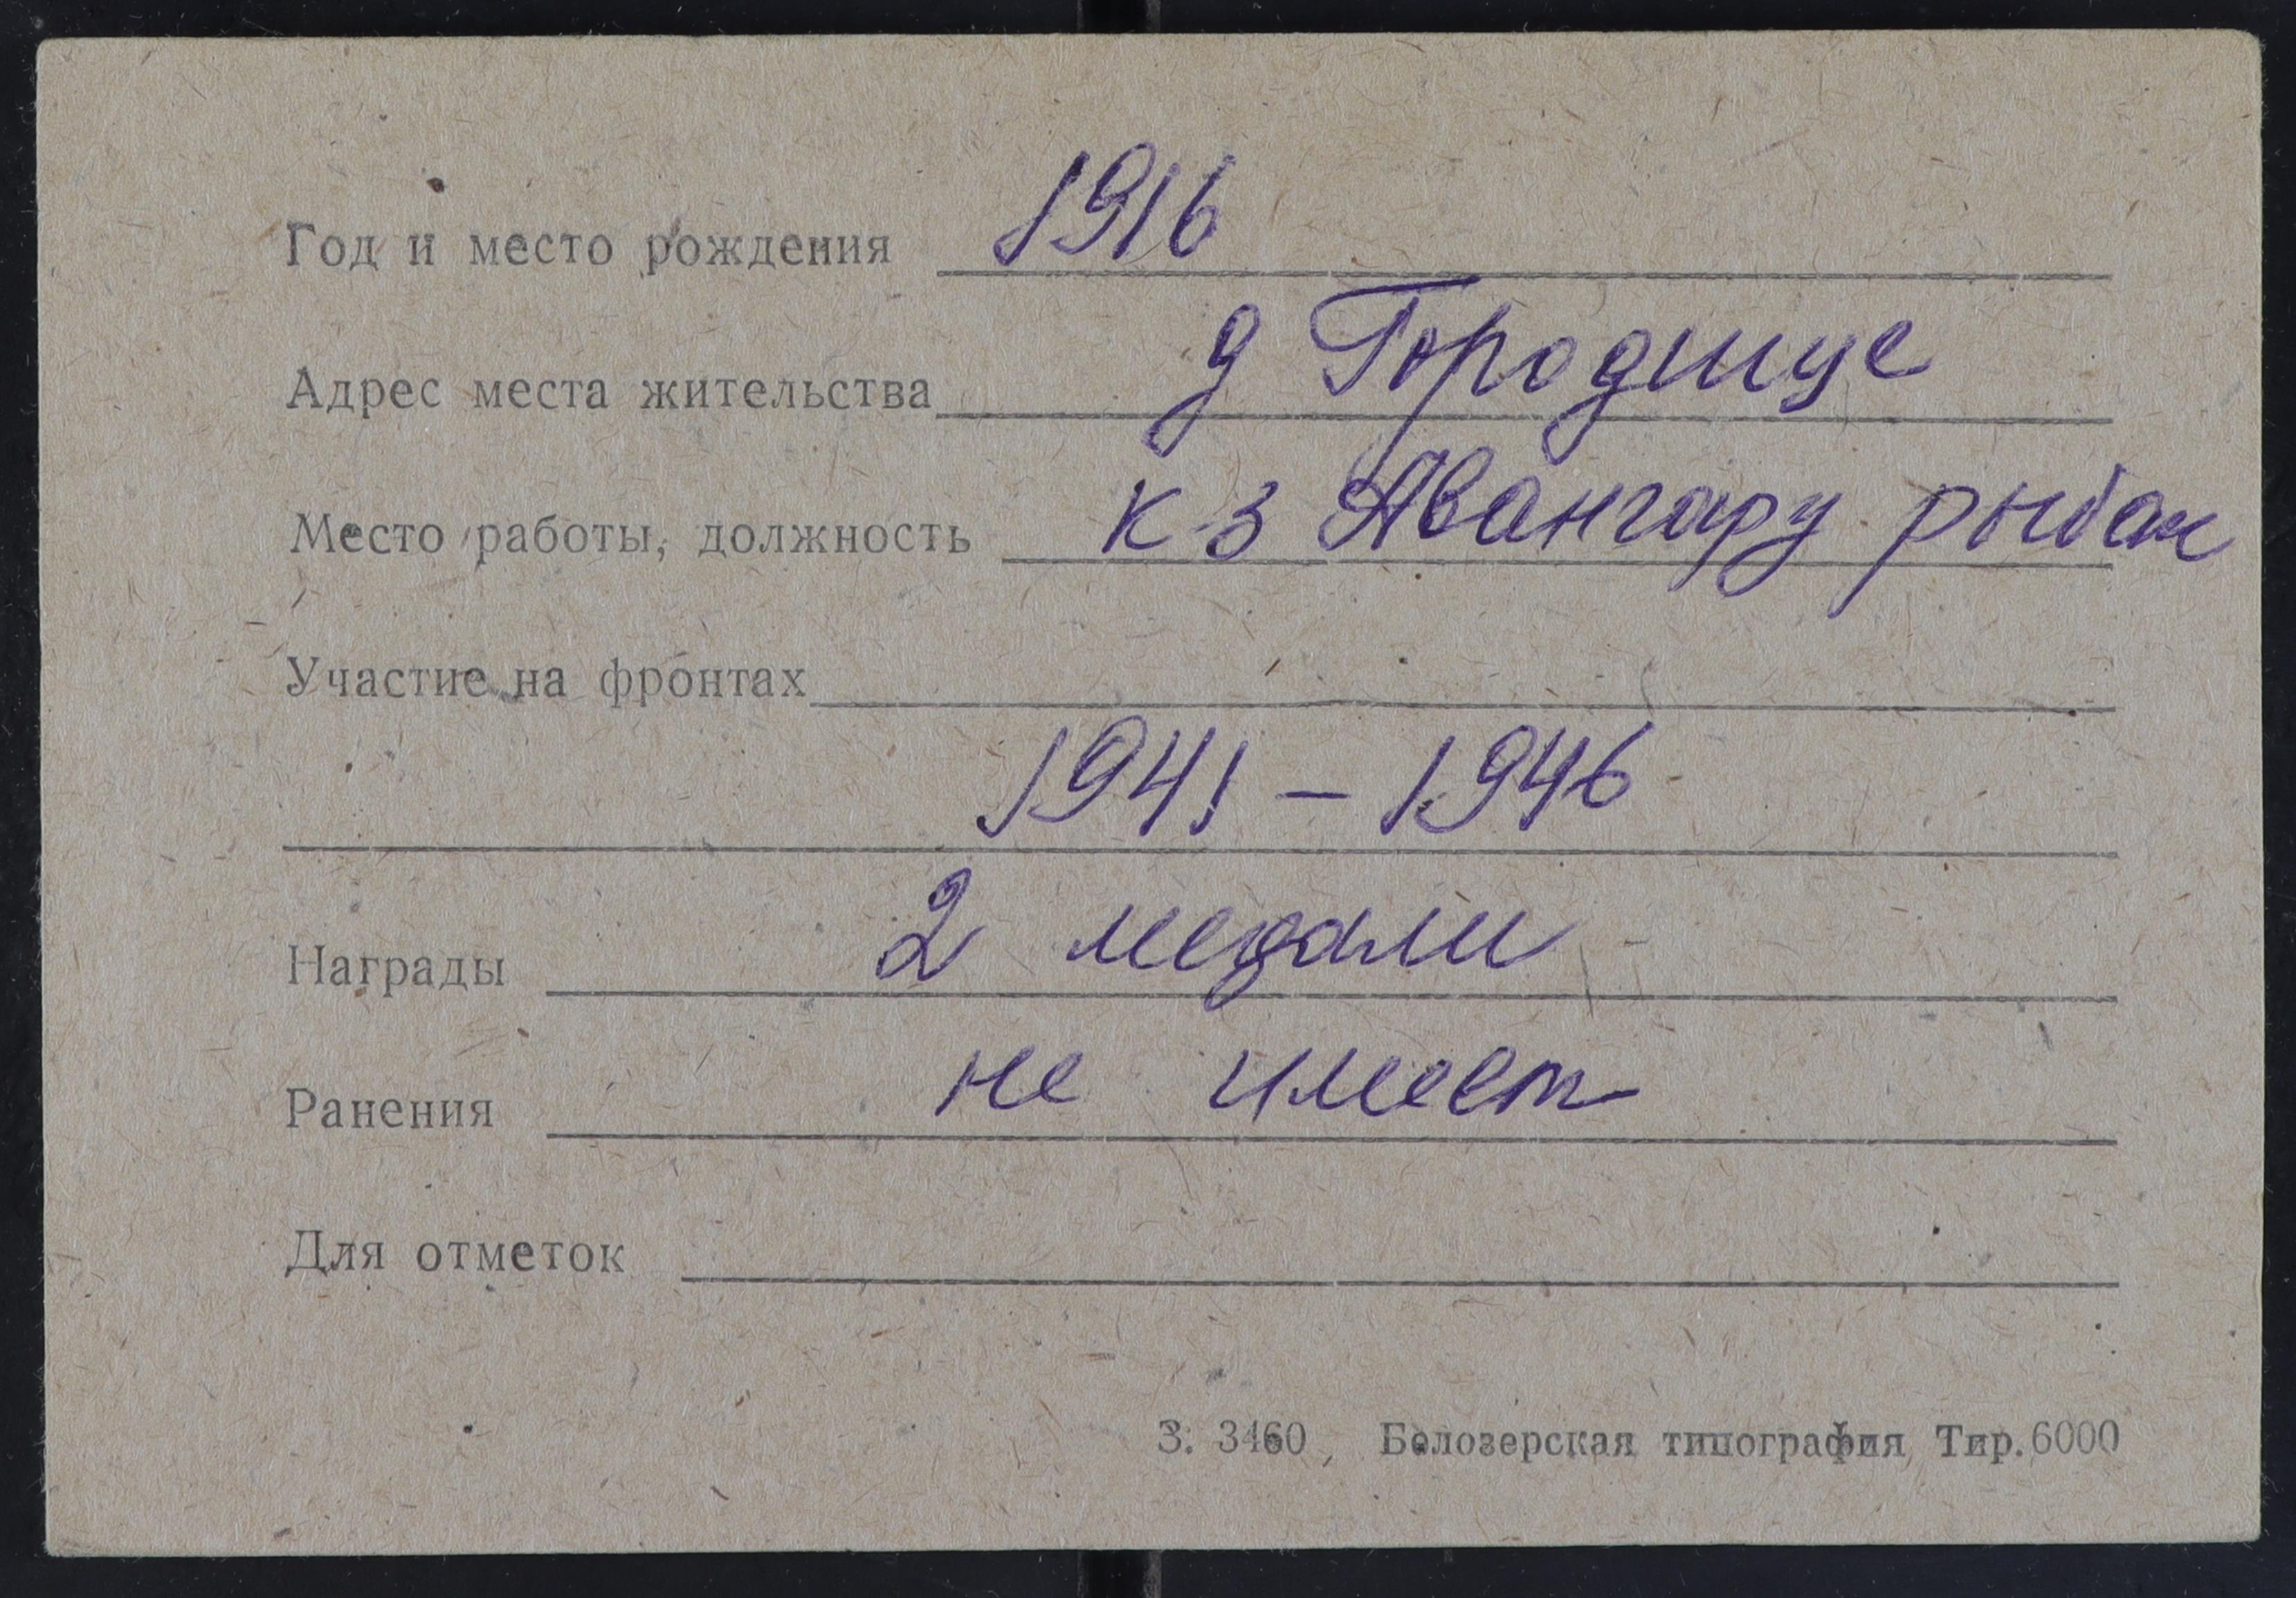 Год и место рождения 1916
Адрес места жительства д Городище
Место работы, должность к-з Авангард рыбак
Участие на фронтах
1941 – 1946
Награды 2 медали
Ранения не имеет
Для отметок
З. 3460, Белозерская типография Тир. 6000